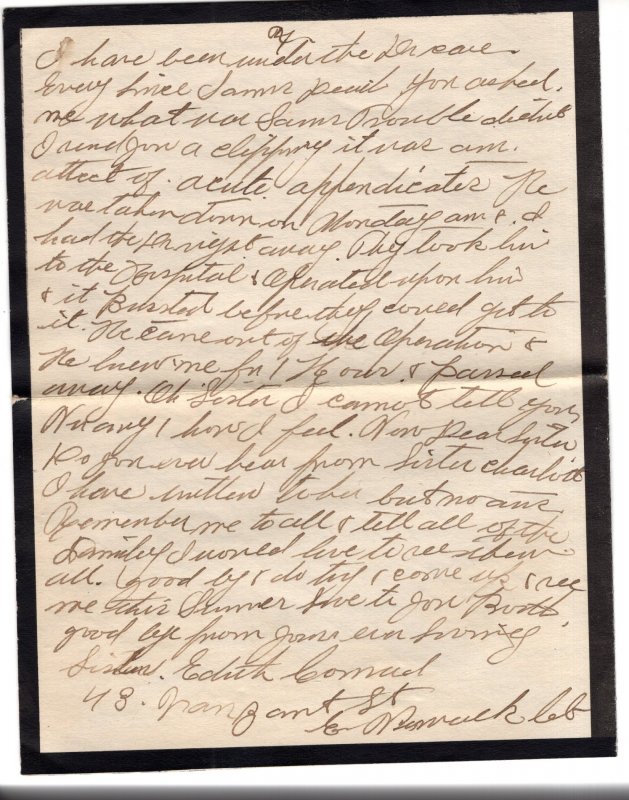 I have been under the Dr care
Every since Sams Death You asked
me what was Sams Trouble didnt
I send you a clipping it was an
attack of acute appendicates He
was taken down on Monday am & I
had the Dr right away. They took him
to the Hospital & Operated upon him
& it Bursted before they could get to
it. He came out of the Operation &
He knew me for 1 Hour & Passed
away. Oh Sister I cannot tell you
how I feel. Now Dear Sister
Do you ever hear from Sister Charlott
I have written to her but no ans
Remember me to all & tell all of the
Family I would love to see them
all. good by & do try & come up & see
me this Summer love to you Both
good bye from your ever loving
Sister. Edith Conrad
43. Van Zant St
E Norwalk Ct